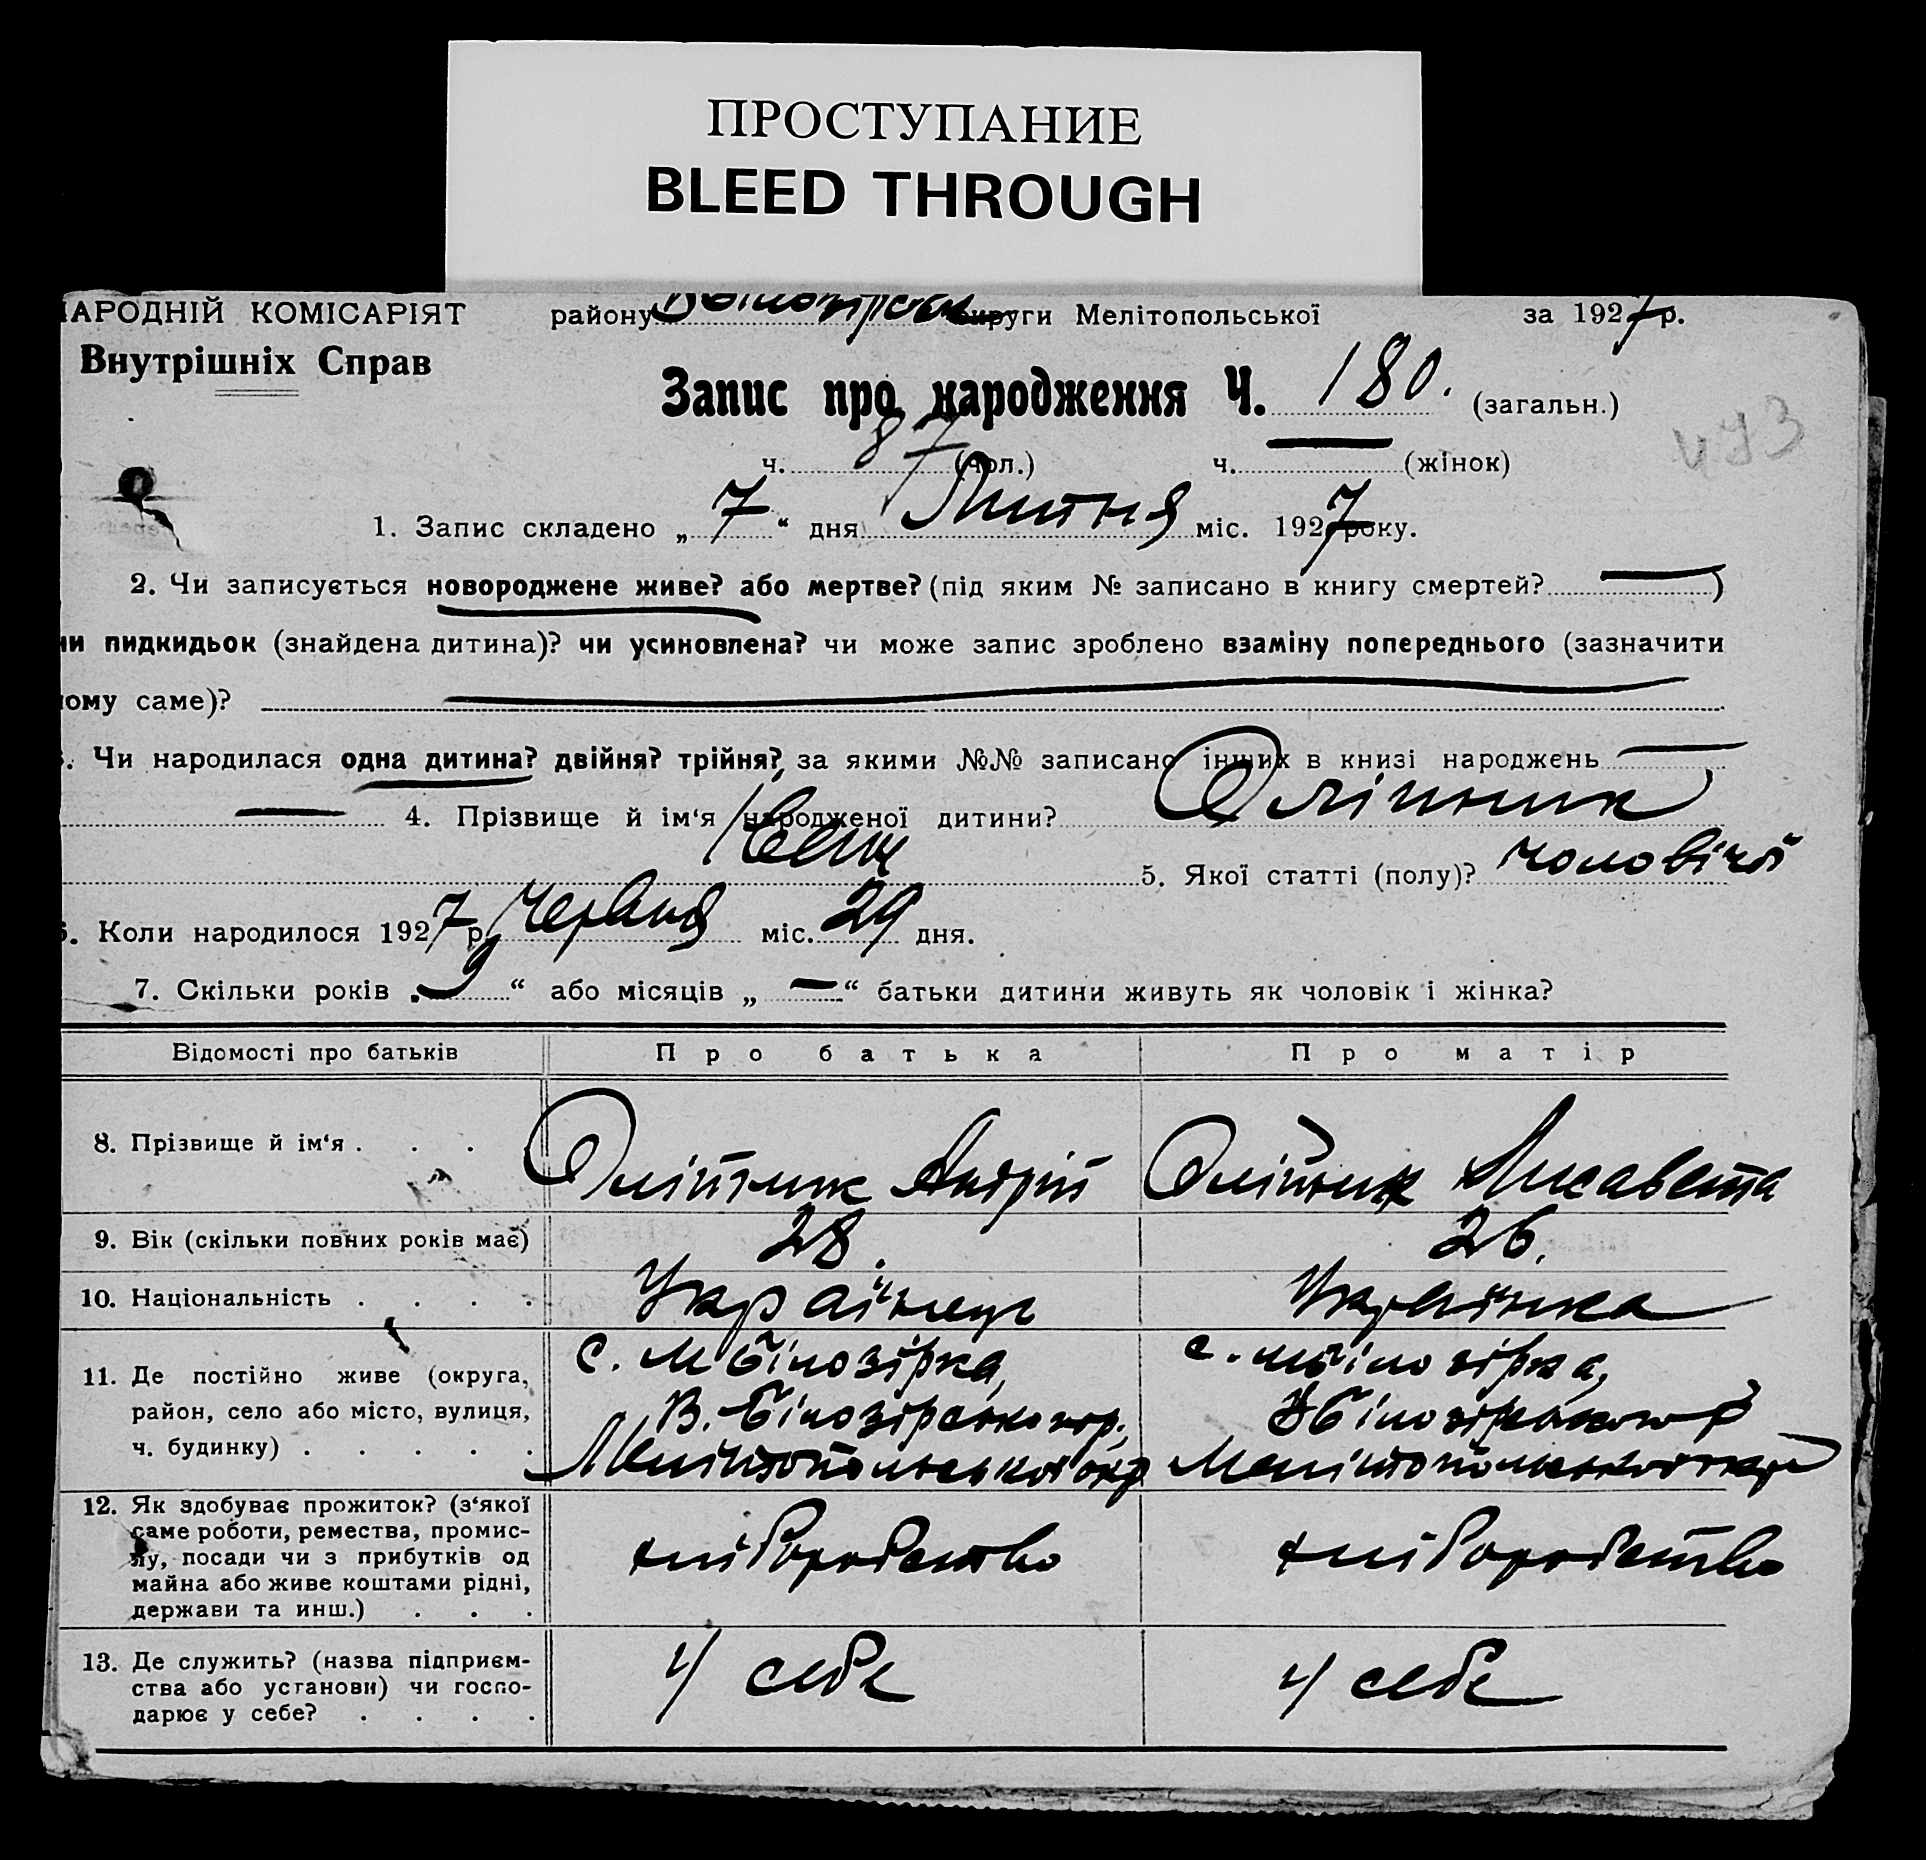 ПРОСТУПАНИЕ
BLEED THROUGH
НАРОДНІЙ КОМІСАРІЯТ району округи Мелітопольської за 1927 р.
Внутрішніх Справ
Запис про народження Ч. 180. (загальн.)
473
ч. 87 (чол.) ч. — (жінок)
1. Запис складено „ 7 “ дня Липня міс. 1927 року.
2. Чи записується новороджене живе? або мертве? (під яким № записано в книгу смертей? — )
чи пидкидьок (знайдена дитина)? чи усиновлена? чи може запис зроблено взаміну попереднього (зазначити
кому саме)? —
3. Чи народилася одна дитина? двійня? трійня? за якими №№ записано інших в книзі народжень —
— 4. Прізвище й ім‘я народженої дитини? Олійник
5. Якої статті (полу)? чоловічої
6. Коли народилося 1927 р. Червня міс. 29 дня.
7. Скільки років „ 9 “ або місяців „ — “ батьки дитини живуть як чоловік і жінка?
Відомості про батьків Про батька Про матір
8. Прізвище й ім‘я . . . Олійник Андрій Олійник Лисавета
9. Вік (скільки повних років має) 28. 26.
10. Національність . . . . Українець Українка
11. Де постійно живе (округа, с. М Білозірка, с. М Білозірка,
район, село або місто, вулиця, В. Білозірського р. В Білозірського р
ч. будинку) . . . . . Мелітопольської окр Мелітопольської окр
12. Як здобуває прожиток? (з‘якої
саме роботи, ремества, промис-
лу, посади чи з прибутків од хліборобство хліборобство
майна або живе коштами рідні,
держави та инш.) . . .
13. Де служить? (назва підприєм-
ства або установи) чи госпо- У себе У себе
дарює у себе? . . . .